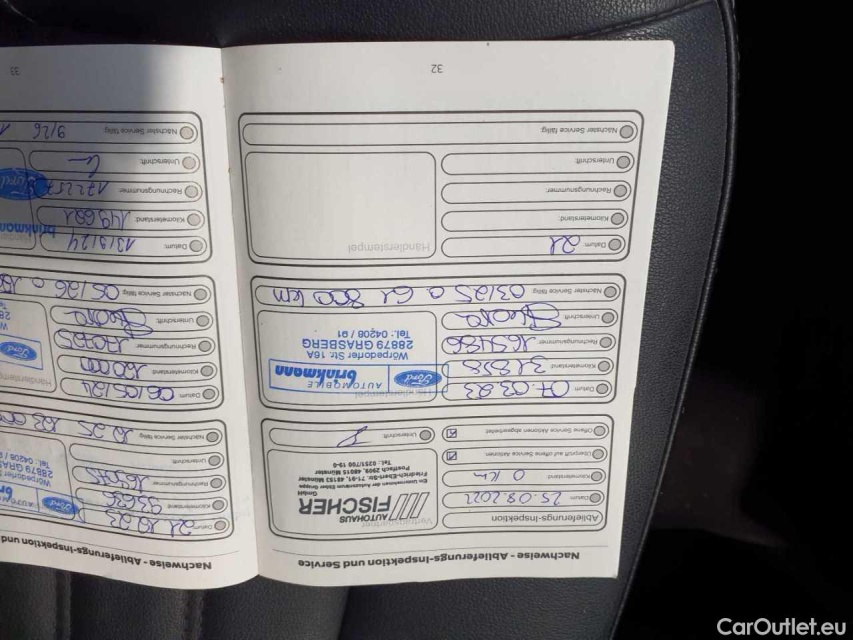 Nachweise - Ablieferungs-Inspektion und Service
Ablieferungs-Inspektion
Datum 25.08.2021
Kilometerstand 0 km
Überprüft auf offene Service Aktionen
Offene Service Aktionen abgearbeitet
Vertragspartner
AUTOHAUS
FISCHER
GmbH
Ein Unternehmen der Autozentrum Gruppe
Friedrich-Ebert-Str. 71-91, 48153 Münster
Postfach 2909, 48015 Münster
Tel.: 0251/700 19-0
Unterschrift
Datum 07.03.23
Kilometerstand 31828
Rechnungsnummer 165486
Unterschrift
Nächster Service fällig 03/25 o 61 800 km
Händlerstempel
Ford AUTOMOBILE
brinkmann
Wörpedorfer Str. 16A
28879 GRASBERG
Tel.: 04208 / 91
Datum: 21
Kilometerstand:
Rechnungsnummer:
Unterschrift:
Nächster Service fällig:
Händlerstempel
32
Nachweise - Ablieferungs-Inspektion und
Datum
Kilometerstand
Rechnungsnummer
Unterschrift:
Nächster Service
Ford
28879 GRAS
Tel.: 04208 /
Datum: 06/05/24
Kilometerstand:
Rechnungsnummer:
Unterschrift:
Nächster Service fällig: 05/26 o
Händlerstempel
Ford
Datum: 13/9/24
Kilometerstand: 149621
Rechnungsnummer:
Unterschrift:
Nächster Service fällig: 9/26
brinkmann
Ford
33
CarOutlet.eu